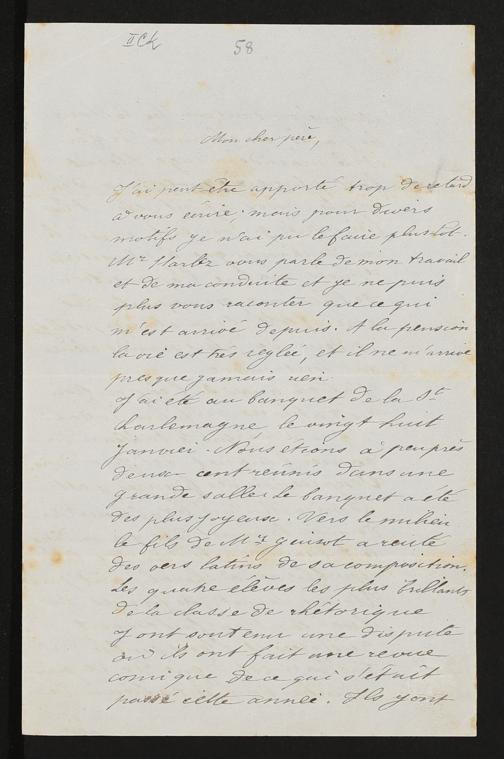 II Ch
58
Mon cher père,
J'ai peut être apporté trop de retard
à vous écrire; mais pour divers
motifs je n'ai pu le faire plustôt.
Mr Harlez vous parle de mon travail
et de ma conduite et je ne puis
plus vous raconter que ce qui
m'est arrivé depuis. A la pension
la vie est très reglée, et il ne m'arrive
presque jamais rien.
J'ai été au banquet de la St
Charlemagne le vingt huit
Janvier. Nous étions à peu près
deux cent réunis dans une
grande salle. Le banquet a été
des plus joyeux. Vers le milieu
le fils de Mr Guizot a recité
des vers latins de sa composition.
Les quatre élèves les plus brillants
de la classe de rhétorique
y ont soutenu une dispute
où ils ont fait une revue
comique de ce qui s'était
passé cette année. Ils y ont